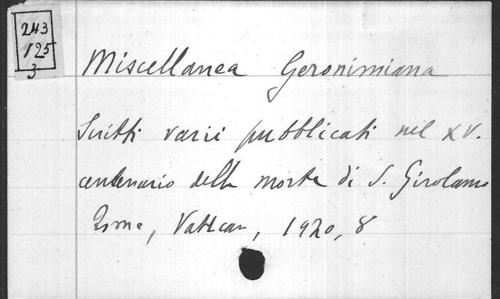 243
125
3
Miscellanea Geronimiana
Scritti varii pubblicati nel XV.
centenario della morte di S. Girolamo
Roma, Vatican, 1920, 8